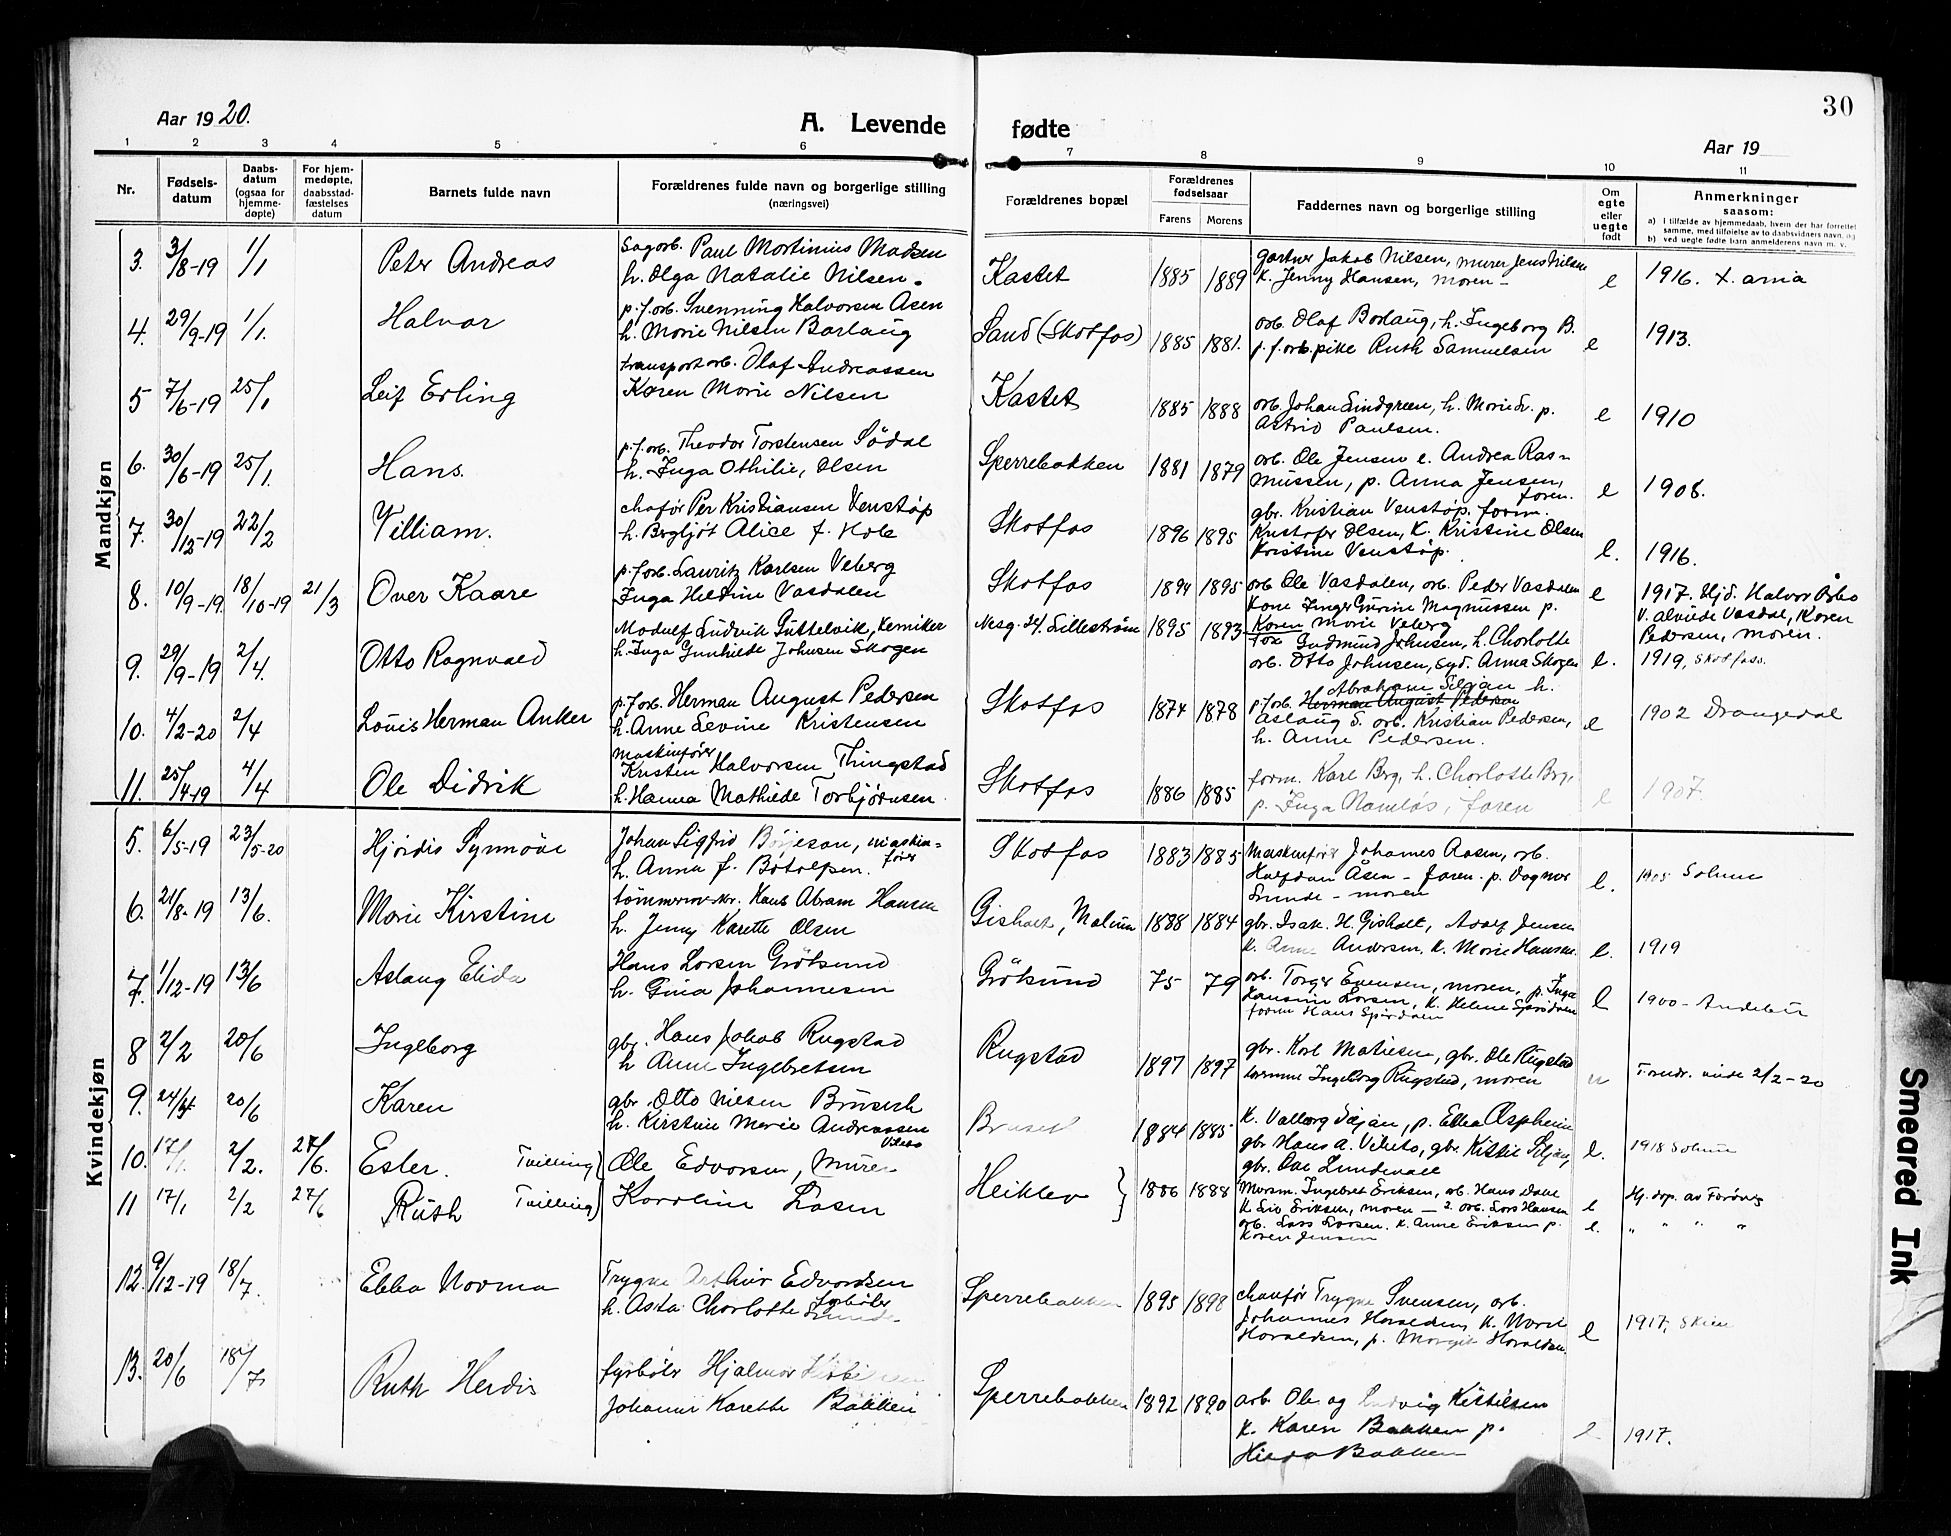 30
Aar 1920.
A. Levende fødte
Aar 19
1 2 3 4 5 6 7 8 9 10 11
Nr.
Fødsels-
datum
Daabs-
datum
(ogsaa for
hjemme-
døpte)
For hjem-
medøpte,
daabsstad-
fæstelses
datum
Barnets fulde navn
Forældrenes fulde navn og borgerlige stilling
(næringsvei)
Forældrenes bopæl
Forældrenes
fødselsaar
Farens Morens
Faddernes navn og borgerlige stilling
Om
egte
eller
uegte
født
Anmerkninger
saasom:
a) I tilfælde av hjemmedaab, hvem der har forrettet
samme, med tilføielse av to daabsvidners navn, og
b) ved uegte fødte barn anmelderens navn m. v.
Mandkjøn
3. 3/8-19 1/1 Peter Andreas
Sagarb. Paul Mortinius Madsen
h. Olga Natalie Nilsen.
Kastet 1885 1889
gartner Jakob Nilsen, murer Jens Nilsen
k. Jenny Hansen, moren -
e 1916.
4. 29/9-19 1/1. Halvor
p.f.arb. Svenning Halvorsen Åsen
h. Marie Nilsen Barlaug
Sand (Skotfos) 1885 1881.
arb. Olaf Barlaug, h. Ingeborg B.
p. f.arb.pike Ruth Samuelsen
e 1913.
5 7/6-19 25/1 Leif Erling
transportarb. Olaf Andreassen
Karen Marie Nilsen
Kastet 1885 1888
arb. Johan Lindgreen, h. Marie L. p.
Astrid Paulsen.
e 1910
6. 30/6-19 25/1. Hans.
p.f.arb. Theodor Torstensen Södal
h. Inga Othilie, Olsen
Sperrebakken 1881 1879
arb. Ole Jensen e. Andrea Ras-
mussen, p. Anna Jensen,
faren.
e 1908.
7. 30/12-19 22/2 William.
chafør Per Kristiansen Venstøp
h. Bergljot Alice f. Hole
Skotfos 1896 1895
gbr. Kristian Venstøp, form.
Kristofer Olsen, K. Kristine Olsen
Kristine Venstøp.
e. 1916.
8. 10/9-19. 18/10-19 21/3 Over Kaare
p.f.arb. Lauritz Karlsen Veberg
Inga Heldine Vasdalen
Skotfos 1894 1895
arb Ole Vasdalen, arb. Peder Vasdalen
Kone Inger Gurine Magnussen p.
Karen Marie Veberg
e 1917. Hjd. Halvor Årbo
v. Alvilde Vasdal, Karen
Pedersen, moren.
9. 29/9-19 2/4. Otto Ragnvald
Modulf Ludvik Guttelvik, kemiker
h. Inga Gunhilde Johnsen Skogen
Nesg. 24 Lillestrøm 1895 1893
Gudmund Johnsen, h. Charlotte
arb. Otto Johnsen, syd. Anna Skogen
e. 1919, Skotfoss.
10. 4/2-20 2/4 Louis Herman Anker
p.f.arb. Herman August Pedersen
h. Anne Levine Kristensen
Skotfos 1874 1878
Abraham Siljan h.
p.f.arb. Herman August Pedersen
Aslaug S. arb. Kristian Pedersen,
h. Anne Pedersen.
e 1902 Drangedal
11. 25/4-19 4/4 Ole Didrik
maskinfører
Kristen Halvorsen Thingstad
h. Hanna Mathilde Torbjørnsen.
Skotfos 1886 1885
form. Karl Berg, h. Charlotte Berg,
p. Inga Namløs, faren
e 1907.
Kvindekjøn
5. 6/5-19 23/5-20 Hjördis Synnöve
Johan Sigfrid Börjeson, maskin-
fører
h. Anna f. Botolfsen.
Skotfos 1883 1885
Maskinfører Johannes Aasen, arb.
Halfdan Åsen - faren. p. Dagmar
Lunde - moren
e. 1905 Solum
6. 21/8-19 13/6. Marie Kirstine
tömmerm. Hans Abram Hansen
h. Jenny Karette Olsen
Gisholt, Melum 1888 1884
gbr. Isak. H. Gisholt, Adolf Jensen
k. Anne Andersen. K. Marie Hansen
e. 1919
7. 1/12-19 13/6 Aslaug Elida
Hans Larsen Grötsund
h. Gina Johannesen
Grötsund 75 79
arb. Torger Evensen, moren, p. Inga
Hansine Larsen, K. Helene
e 1900 - Andebu
8 2/2 20/6 Ingeborg
gbr. Hans Jakob Rugstad
h Anne Ingebretsen
Rugstad 1897 1897
gbr. Karl Matisen, gbr. Ole Rugstad
Ingeborg Rugstad, moren
2/2-20
9. 24/4 20/6 Karen
gbr. Otto Nilsen Bruseth
h. Kirstine Marie Andreassen
1884 1885
K. Valborg Siljan, p. Ebba Aspheim
gbr Hans A. Vibito, gbr. Kittil Siljan,
gbr. Ole Lundevall
e. 1918 Solum
10. 17/1. 2/2. 27/6. Ester. Tvilling
Ole Edvarsen, Murer
11 17/1 2/2 27/6 Ruth Tvilling
Karoline Lasen
Heiklev 1886 1888
Mursm. Ingebret Eriksen, arb. Hans Dale
K Siv Eriksen, moren - 2. arb. Lars Hansen
arb. Lars Larsen. K. Anne Eriksen p.
Karen Jensen
e Hj. døp. av
e. " " " "
12. 9/12-19 18/7. Ebba Norma
Trygve Arthur Edvardsen
h. Asta Charlotte Lunde
Sperrebakken 1895 1898
chauför Trygve Svensen, arb.
Johannes Haraldsen, K. Marie
Haraldsen, p. Margit Haraldsen.
e 1917, Skien
13. 20/6 18/7. Ruth Herdis
fyrbøter Hjalmar
Johanne Karette Bakken
Sperrebakken 1892 1890
arb. Ole og Ludvig Kittilsen
K. Karen Bakken p.
Hilda Bakken
e 1917.
Smeared Ink